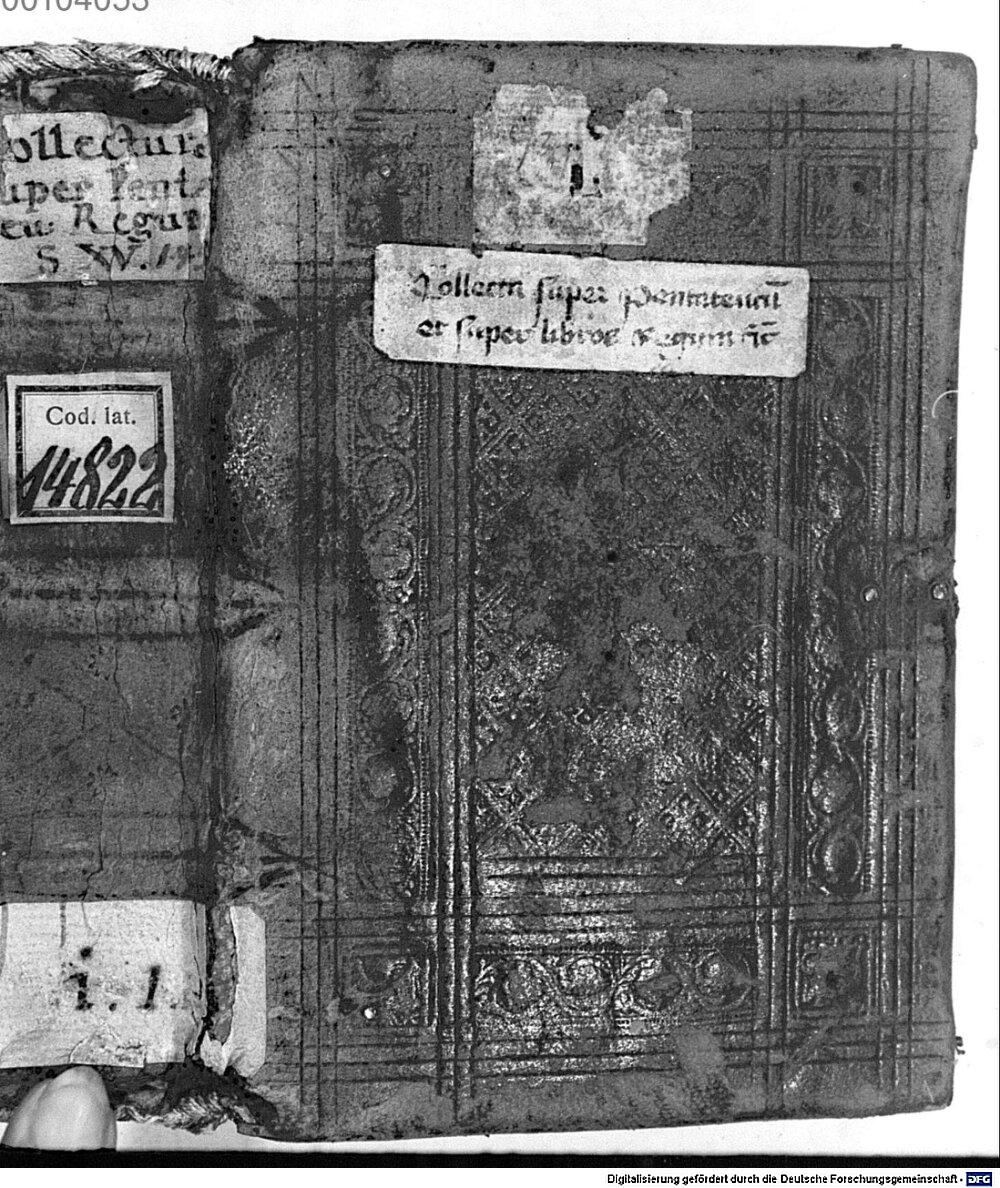 00104053
ollectur
uper Pent
eu Regum
S W. 19
Cod. lat.
14822
i. 1.
i
Collecta super Pentateucū
et super libros Regum
Digitalisierung gefördert durch die Deutsche Forschungsgemeinschaft - DFG